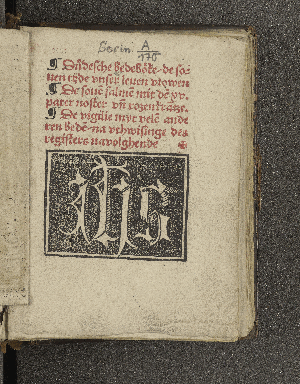 Scrin. A
170
¶ Dudesche bedeböke. de sö-
uen tyde vnser leuen vrowen
¶ De souē psalmē mit dē pr.
pater noster vñ rozenkrantz.
¶ De vigilie myt velē ande
ren bedē na vthwisinge des
registers navolghende
ihs